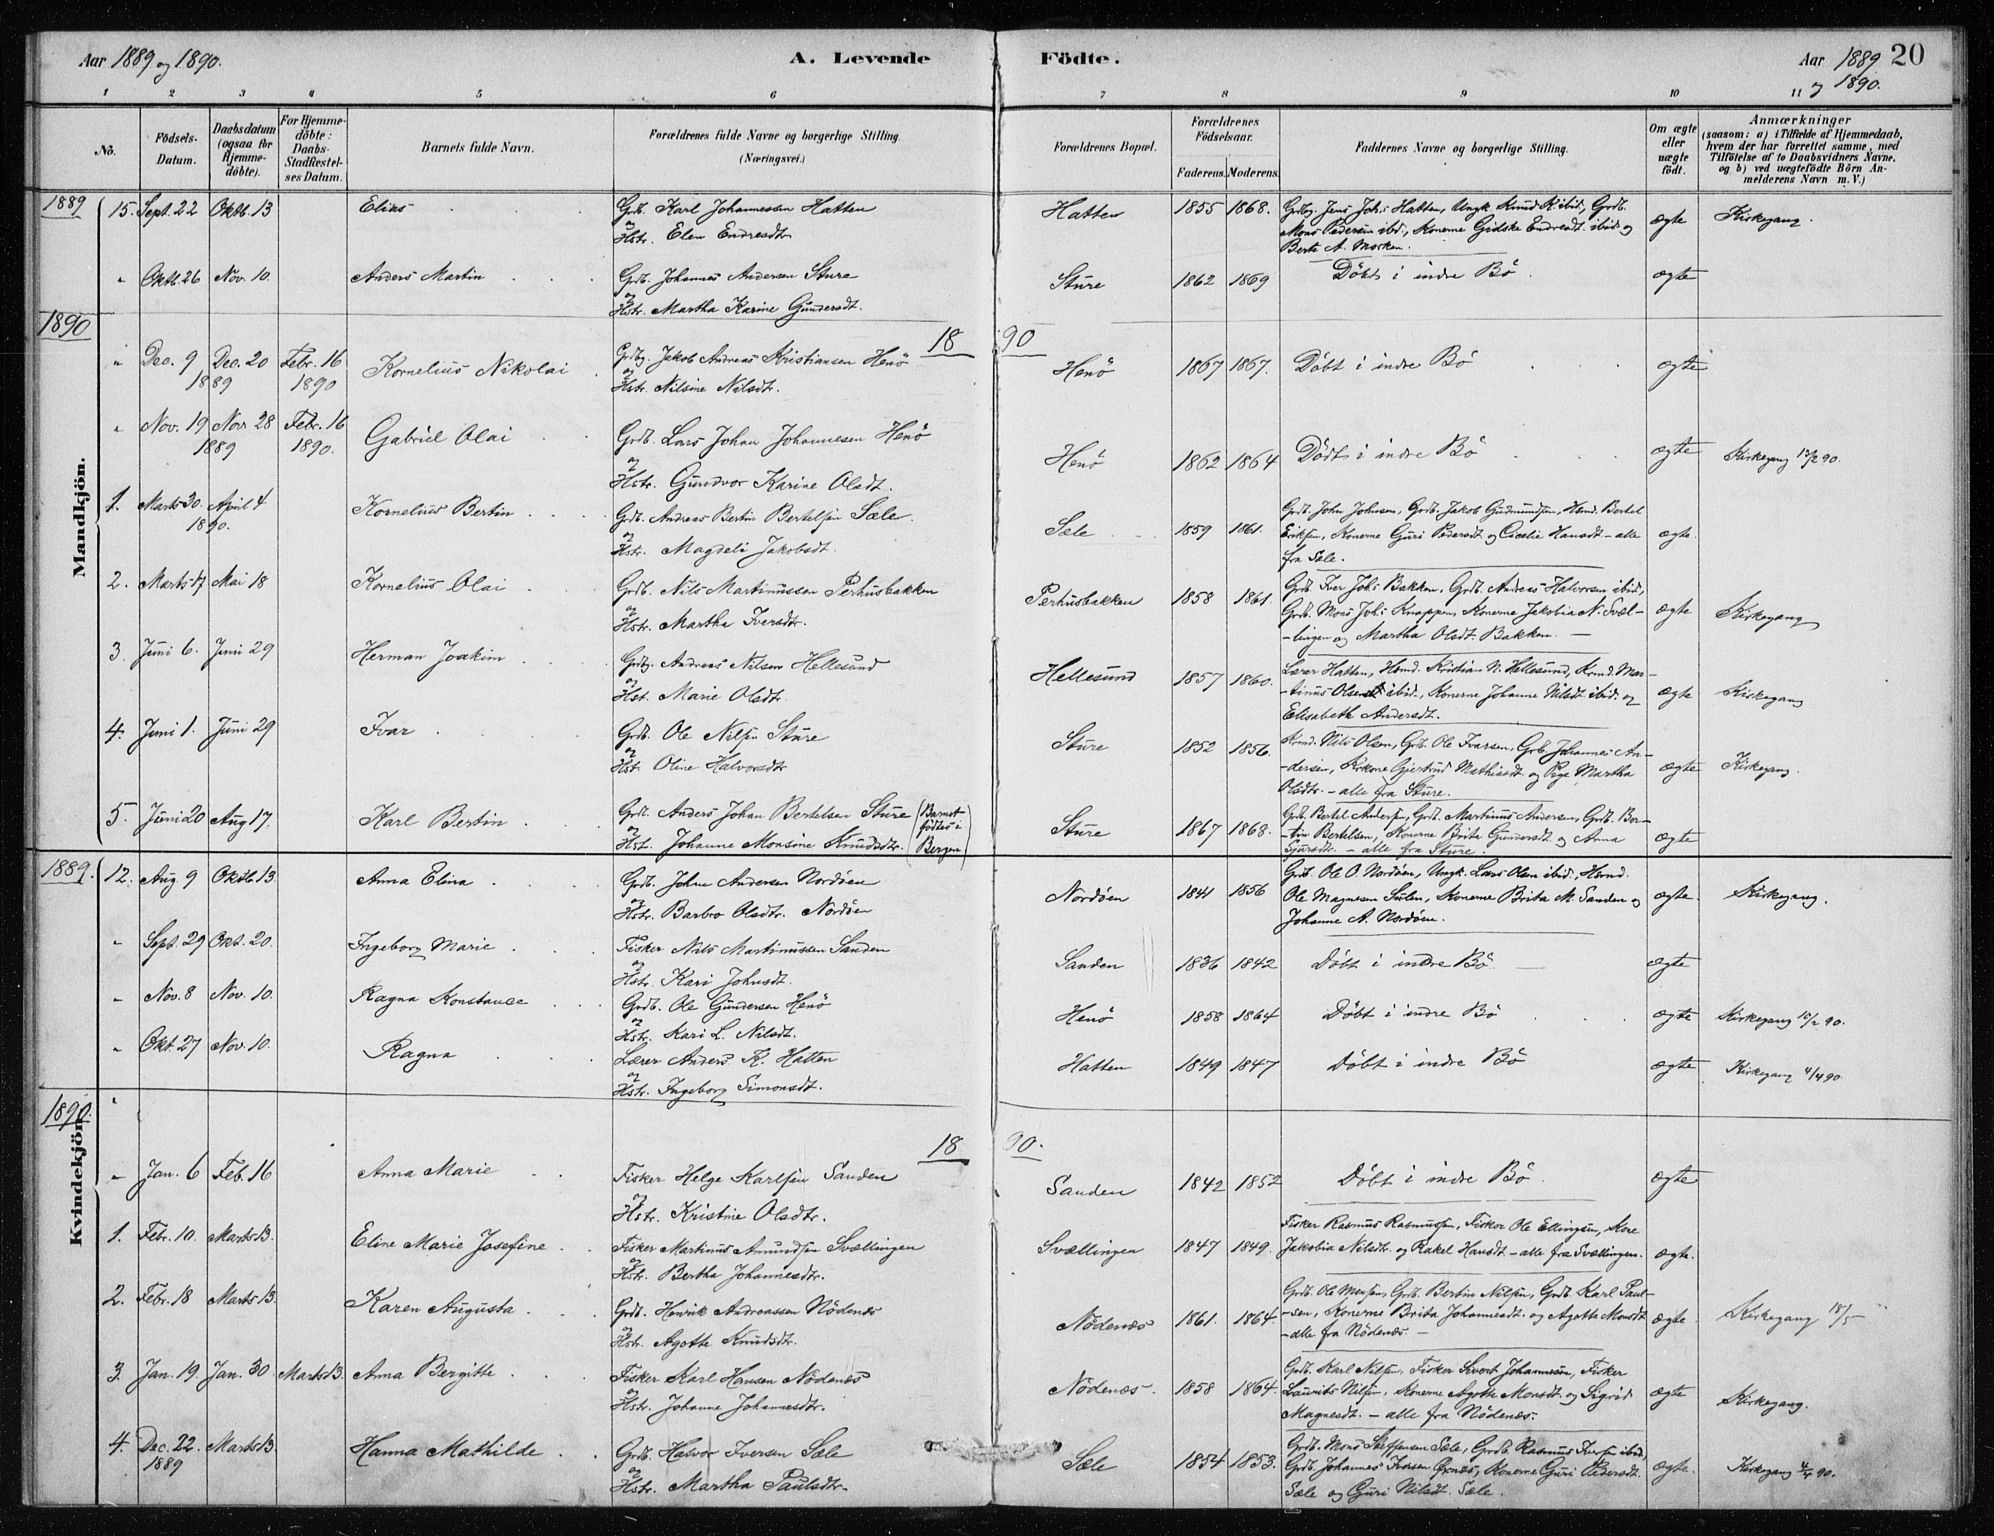 Aar 1889 og 1890.
A. Levende Födte.
Aar 1889 og 1890. 20
1 2 3 4 5 6 7 8 9 10 11
No.
Födsels-Datum.
Daabsdatum (ogsaa for Hjemme-döbte).
For Hjemme-döbte: Daabs-Stadfæstel-ses Datum.
Barnets fulde Navn.
Forældrenes fulde Navne og borgerlige Stilling. (Næringsvei.)
Forældrenes Bopæl.
Forældrenes Födselsaar.
Faderens. Moderens.
Faddernes Navne og borgerlige Stilling.
Om ægte eller uægte födt.
Anmærkninger
(saasom: a) i Tilfælde af Hjemmedaab,
hvem der har forrettet samme, med
Tilföielse af to Daabsvidners Navne,
og b) ved uægtefödte Börn An-
melderens Navn m. V.)
Mandkjön.
1889
15. Sept. 22 Oktb. 13 Elias Grdb. Karl Johannessen Hatten og Hstr. Elen Endresdtr. Hatten 1855 1868. Grdbg. Jens Johs Hatten, Ungk. Knud K. ibid, Grdb. Mons Pedersen ibd., Konerne Gidske Endresdt. ibid og Berte A. Morken. ægte Kirkegang.
" Oktb. 26 Nov. 10. Anders Martin Grdb. Johannes Andersen Sture og Hstr. Martha Karine Gundersdt. Sture 1862 1869 Döbt i indre Bö. ægte
1890
18 90
" Dec. 9 Dec. 20 1889 Febr. 16 1890 Kornelius Nikolai Grdbg. Jakob Andreas Kristiansen Henö og Hstr. Nilsine Nilsdt. Henö 1867 1867. Döbt i indre Bö ægte
" Nov. 19 Nov. 28 1889 Febr. 16 1890. Gabriel Olai Grdb. Lars Johan Johannesen Henö og Hstr. Gundvor Karine Olsdt. Henö 1862 1864 Döbt i indre Bö ægte Kirkegang
1. Marts 30. April 4 1890. Kornelius Bertin Grdb. Andreas Bertin Bertelsen Sæle og Hstr. Magdeli Jakobsdt. Sæle 1859 1861. Grdb. John Johnsen, Grdb. Jakob Gudmundsen, Hsmd. Bertel Eriksen, Konerne Guri Pedersdt og Cicelie Hansdt – alle fra Sæle. ægte.
2. Marts 17 Mai 18 Kornelius Olai Grdb. Nils Martinussen Perhusbakken og Hstr. Martha Iversdtr. Perhusbakken 1858 1861. Grdb. Iver Johs Bakken, Grdb. Andreas Halvorsen ibid, Grdb. Mons Johs Knappen, Konerne Jakobia N. Svæl-lingen og Martha Olsdt. Bakken. – ægte Kirkegang
3. Juni 6. Juni 29 Herman Joakim Grdbg. Andreas Nilsen Hellesund og Hst. Marie Olsdt. Hellesund 1857 1860. Lærer Hatten, Hsmd. Kristian N. Hellesund, Mar-tinus Olsen ibid., Konerne Johanne Nilsdt ibid. og Elisabeth Andersdt. ægte Kirkegang
4. Juni 1. Juni 29 Ivar Grdb. Ole Nilsen Sture og Hst. Oline Halvorsdt. Sture 1852 1856. Nils Olsen, Grdb. Ole Ivarsen, Grb. Johannes An-dersen, Gjertrud Mathisdt og Pige Martha Olsdtr. – alle fra Sture. ægte Kirkegang.
5. Juni 20 Aug 17. Karl Bertin Grdb. Anders Johan Bertelsen Sture og Hst. Johanne Monsine Knudsdtr. (Barnet födtes i Bergen) Sture 1867 1868. Grb. Bertel Andersen, Grdb. Martinus Andersen, Grdb. Ber-tin Bertelsen, Konerne Brita Gundersdt. og Anna Sjursdtr. – alle fra Sture. ægte
Kvindekjön.
1889.
12. Aug 9 Oktb. 13. Anna Elina Grdb. John Andersen Nordöen og Hstr. Barbro Olsdtr. Nordöen Nordöen 1841 1856 Grdb. Ole O. Nordöen, Ungk. Lars Olsen ibid, Hsmd. Ole Magnesen Sulen, Konerne Brita M. Sanden og Johanne A. Nordöen. ægte. Kirkegang.
" Sept. 29 Okt. 20. Ingeborg Marie Fisker Nils Martinussen Sanden og Hstr. Kari Johnsdt. Sanden 1836 1842 Döbt i indre Bö ægte
" Nov. 8 Nov. 10. Ragna Konstance Grdb. Ole Gundersen Henö og Hstr. Kari L. Nilsdt. Henö 1858 1864 Döbt i indre Bö ægte Kirkegang
" Okt. 27 Nov. 10. Ragna Lærer Anders K. Hatten og Hstr. Ingeborg Simonsdt. Hatten 1849 1847 Döbt i indre Bö ægte Kirkegang 4/4 90.
1890.
18 90.
" Jan. 6 Feb. 16 Anna Marie Fisker Helge Karlsen Sanden og Hstr. Kristine Olsdtr. Sanden 1842 1852 Döbt i indre Bö. ægte
1. Febr. 10. Marts 13. Eline Marie Josefine Fisker Martinus Amundsen Svællingen og Hstr. Bertha Johannesdtr. Svællingen 1847 1849. Fisker Rasmus Rasmussen, Fisker Ole Ellingsen, Kone Jakobia Nilsdtr. og Rakel Hansdt – alle fra Svællingen. ægte.
2. Febr. 18 Marts 13. Karen Augusta Grdb. Henrik Andreassen Nödenæs og Hstr. Agathe Knudsdtr. Nödenæs 1861. 1864. Grdb. Ole Monsen, Grdb. Bertin Nilsen, Grdb. Karl Paul-sen, Konerne Brita Johannesdt. og Agathe Monsdt – alle fra Nödenæs – ægte. Kirkegang 18/5
3. Jan. 19. Jan. 30 Marts 13. Anna Bergitte Fisker Karl Hansen Nödenæs og Hstr. Johanne Johannesdtr. Nödenæs. 1858 1864. Grdb. Karl Nilsen, Fisker Sivert Johannesen, Fisker Laurits Nilsen, Konerne Agathe Monsdt. og Sigrid Magnesdt. – alle fra Nödenæs. ægte Kirkegang.
4. Dec. 22. 1889 Marts 13. Hanna Mathilde Grdb. Halvor Iversen Sæle og Hstr. Martha Paulsdtr. Sæle 1854 1853. Grdb. Mons Steffensen Sæle, Grdb. Rasmus Iversen ibid, Grdb. Johannes Iversen Örnæs, Konerne Guri Pedersdt. Sæle og Guri Nilsdt. Sæle. ægte. Kirkegang 4/4 90.